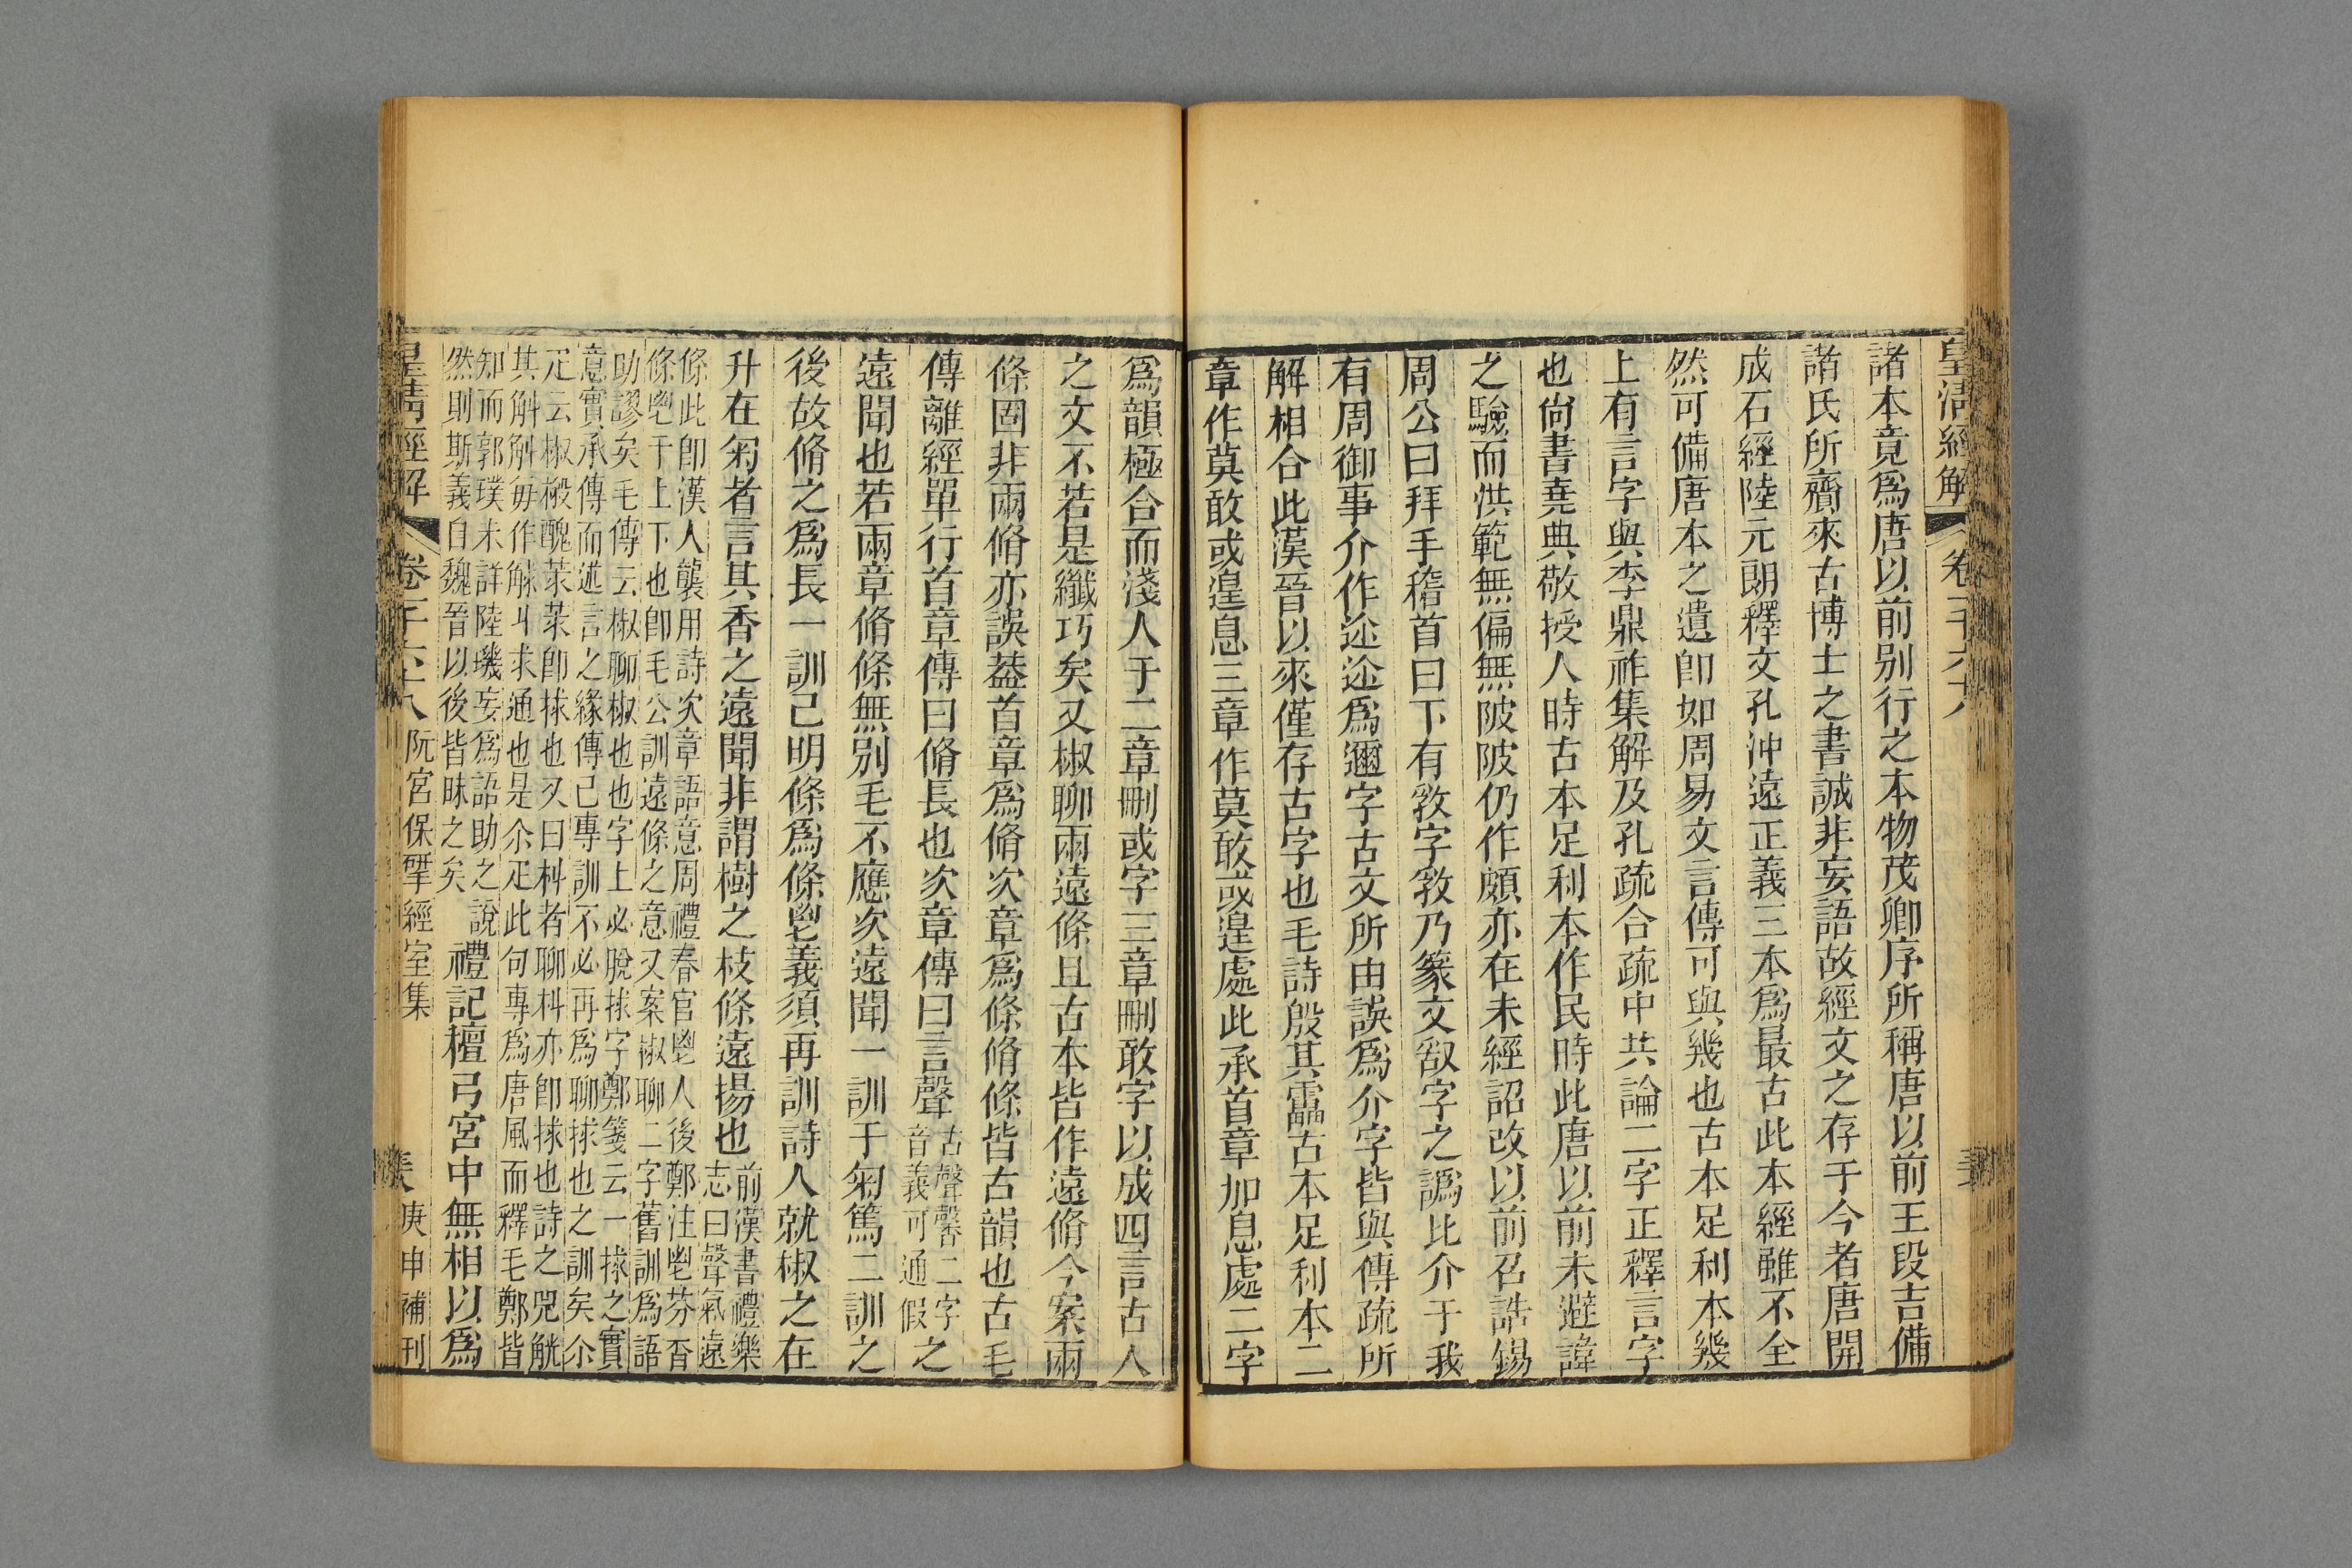 皇清經解
諸本竟爲唐以前别行之本物茂卿序所稱唐以前王段吉備
諸氏所齎來古博士之書誠非妄語故經文之存于今者唐開
成石經陸元朗釋文孔沖遠正義三本爲最古此本經雖不全
然可備唐本之遺卽如周易文言傳可與幾也古本足利本幾
上有言字與李鼎祚集解及孔疏合疏中共論二字正釋言字
也尙書堯典敬授人時古本足利本作民時此唐以前未避諱
之驗而洪範無偏無陂陂仍作頗亦在未經詔改以前召誥錫
周公曰拜手稽首曰下有敦字敦乃篆文叙字之譌比介于我
有周御事介作迩迩爲邇字古文所由誤爲介字皆與傳疏所
解相合此漢晉以來僅存古字也毛詩殷其靁古本足利本二
章作莫敢或遑息三章作莫敢或遑處此承首章加息處二字
爲韻極合而淺人于二章刪或字三章刪敢字以成四言古人
之文不若是纖巧矣又椒聊兩遠條且古本皆作遠脩今案兩
條固非兩脩亦誤葢首章爲脩次章爲條脩條皆古韻也古毛
傳離經單行首章傳曰脩長也次章傳曰言聲
古聲馨二字
音義可通假
之
遠聞也若兩章脩條無别毛不應次遠聞一訓于匊篤二訓之
後故脩之爲長一訓已明條爲條鬯義須再訓詩人就椒之在
升在匊者言其香之遠聞非謂樹之枝條遠揚也
前漢書禮樂
志曰聲氣遠
條此卽漢人襲用詩次章語意周禮春官鬯人後鄭注鬯芬香
條鬯于上下也卽毛公訓遠條之意又案椒聊二字舊訓爲語
助謬矣毛傳云椒聊椒也也字上必脫捄字鄭箋云一捄之實
意實承傳而述言之緣傳已專訓不必再爲聊捄也之訓矣尒
疋云椒樧醜莍莍卽捄也又曰朻者聊朻亦卽捄也詩之兕觥
其斛斛毋作觩丩求通也是尒疋此句專爲唐風而釋毛鄭皆
知而郭璞未詳陸璣妄爲語助之說
然則斯義自魏晉以後皆昧之矣
禮記檀弓宮中無相以爲
皇清經解
卷千六十八
阮宮保揅經室集
庚申補刊